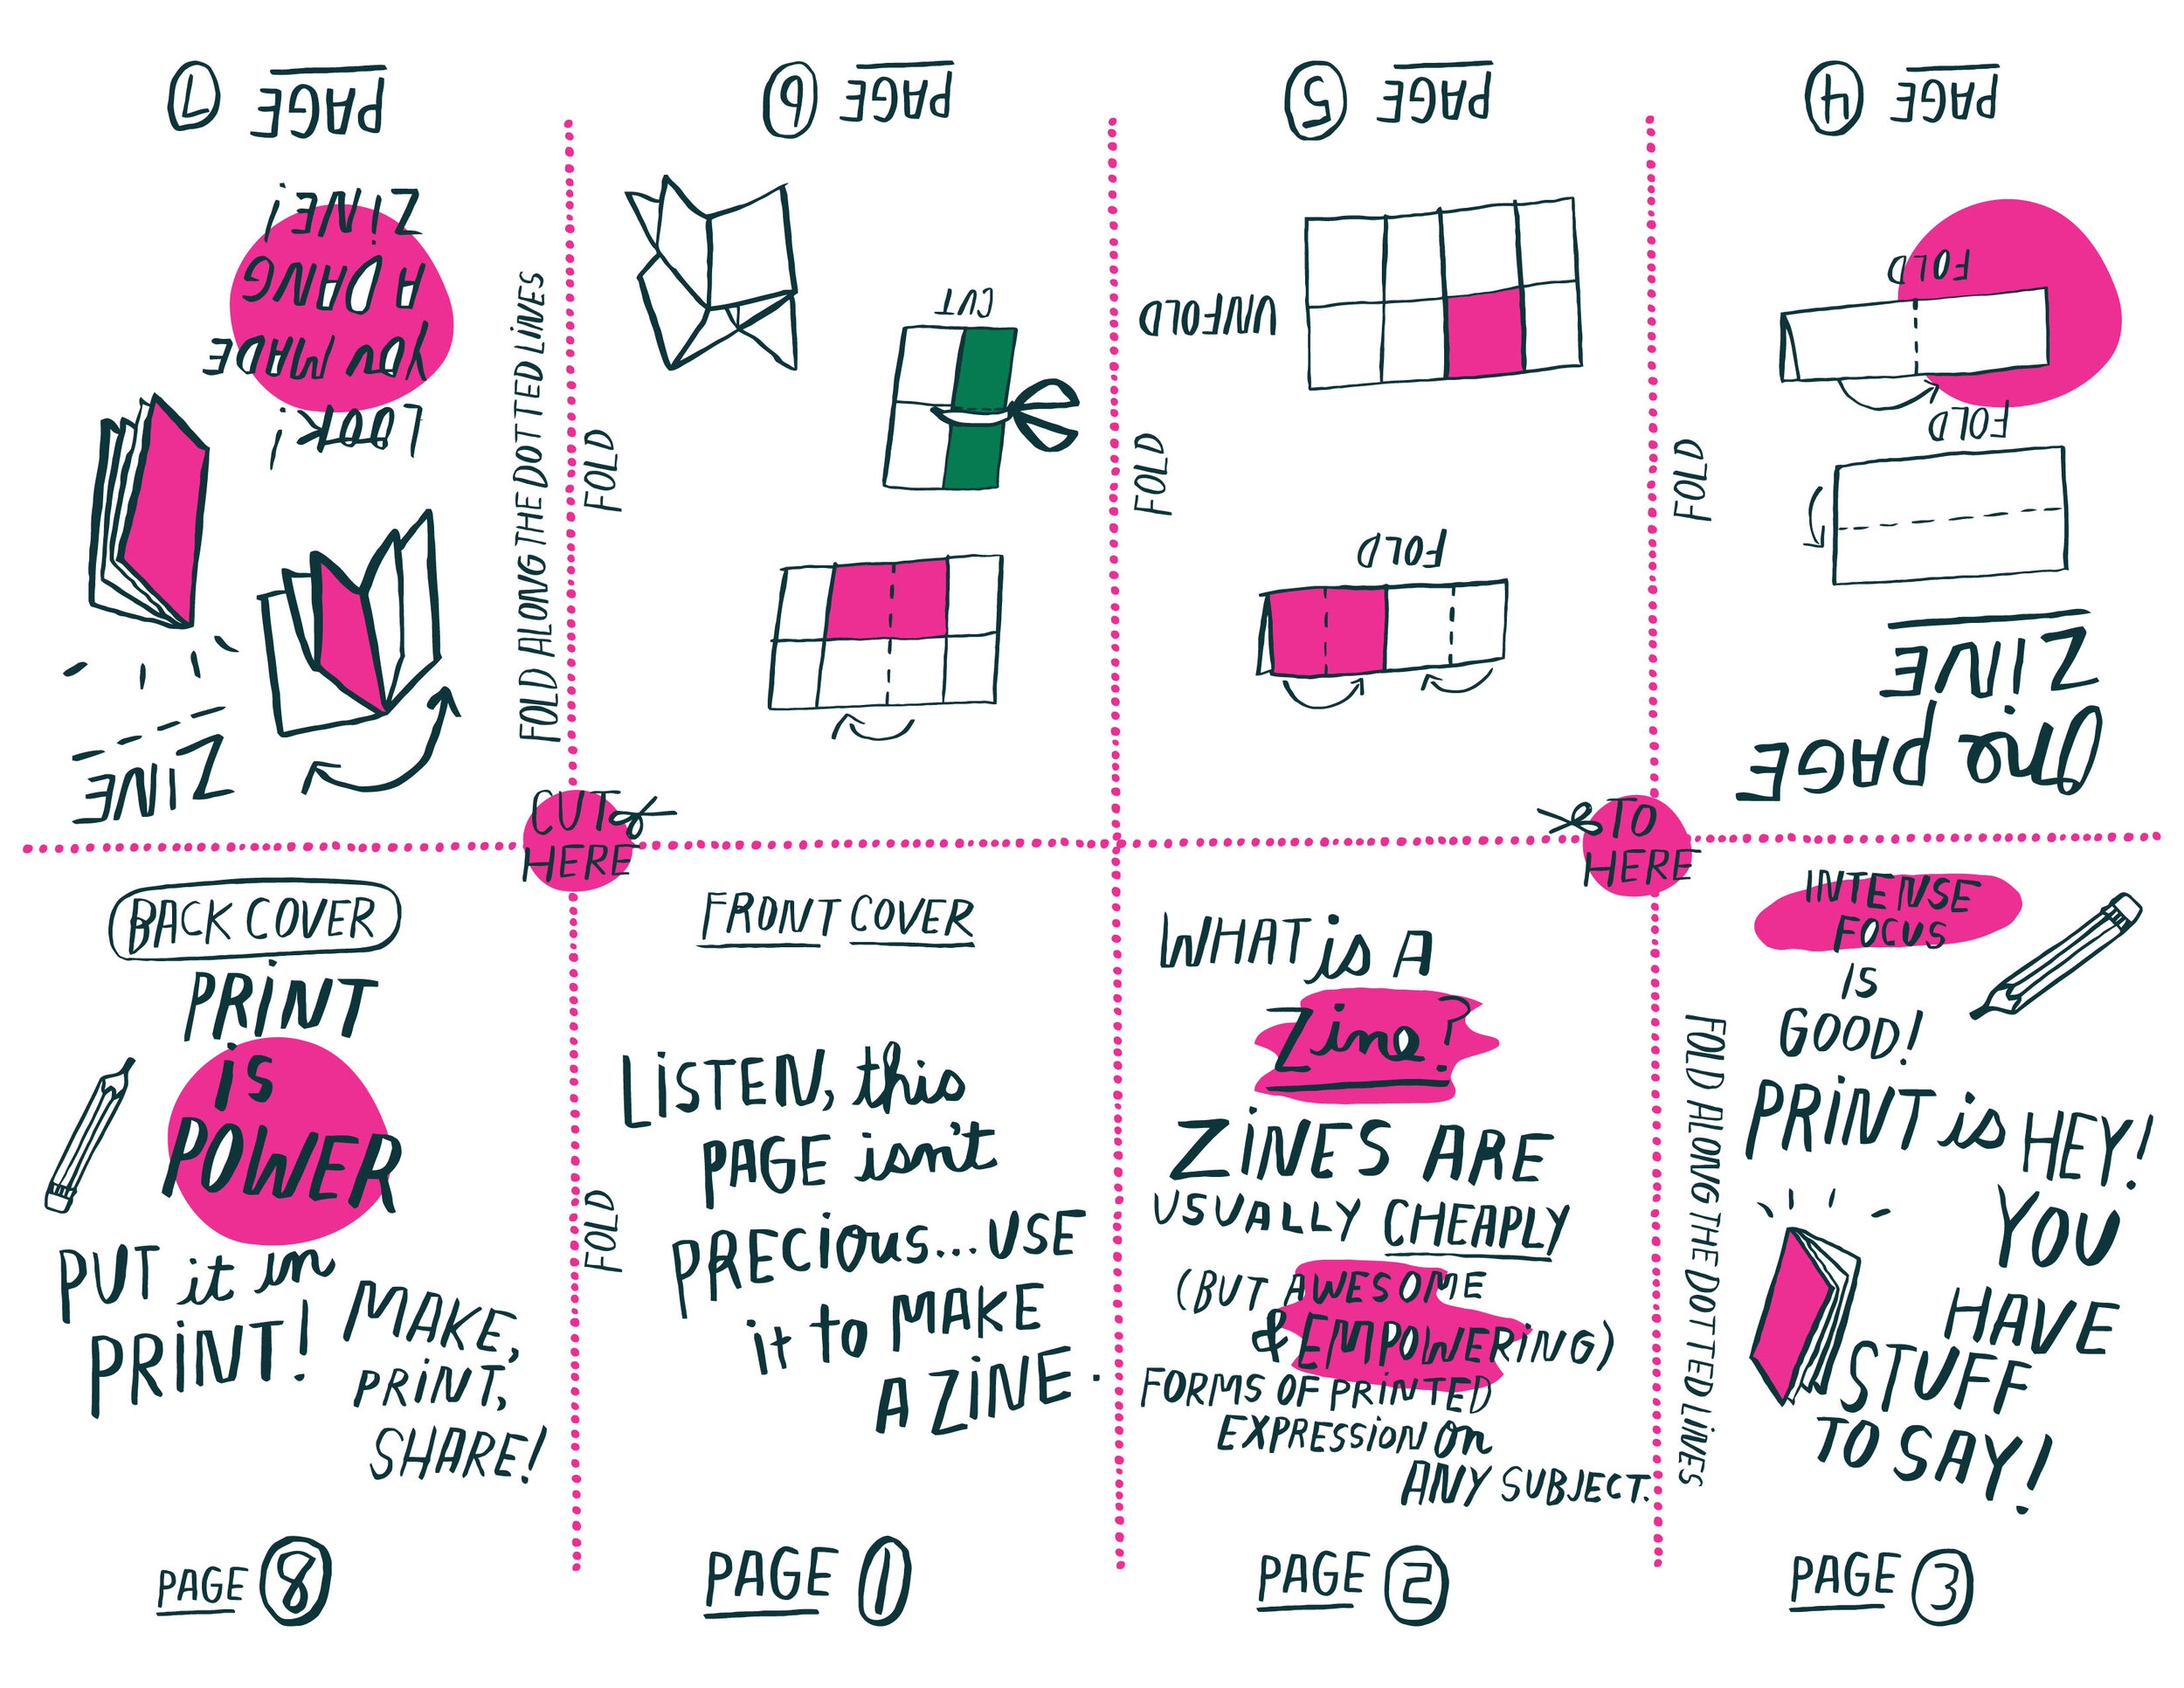 PAGE 7
LOOK!
YOU MADE
A DANG
ZINE!
ZINE
FOLD ALONG THE DOTTED LINES
FOLD
PAGE 6
CUT
FOLD
PAGE 5
UNFOLD
FOLD
FOLD
PAGE 4
One PAGE
ZINE
FOLD
FOLD
CUT
HERE
TO
HERE
BACK COVER
PRINT
is
POWER
PUT it in
PRINT!
MAKE,
PRINT,
SHARE!
PAGE 8
FOLD
FRONT COVER
LISTEN, this
PAGE isn't
PRECious... USE
it to MAKE
A ZINE.
PAGE 1
WHAT is A
Zine?
ZINES ARE
USUALLY CHEAPLY
(BUT AWESOME
& EMPOWERING)
FORMS OF PRINTED
EXPRESSION on
ANY SUBJECT.
PAGE 2
FOLD ALONG THE DOTTED LINES
INTENSE
FOCUS
IS
GOOD!
PRINT is HEY!
YOU
HAVE
STUFF
TO SAY!
PAGE 3